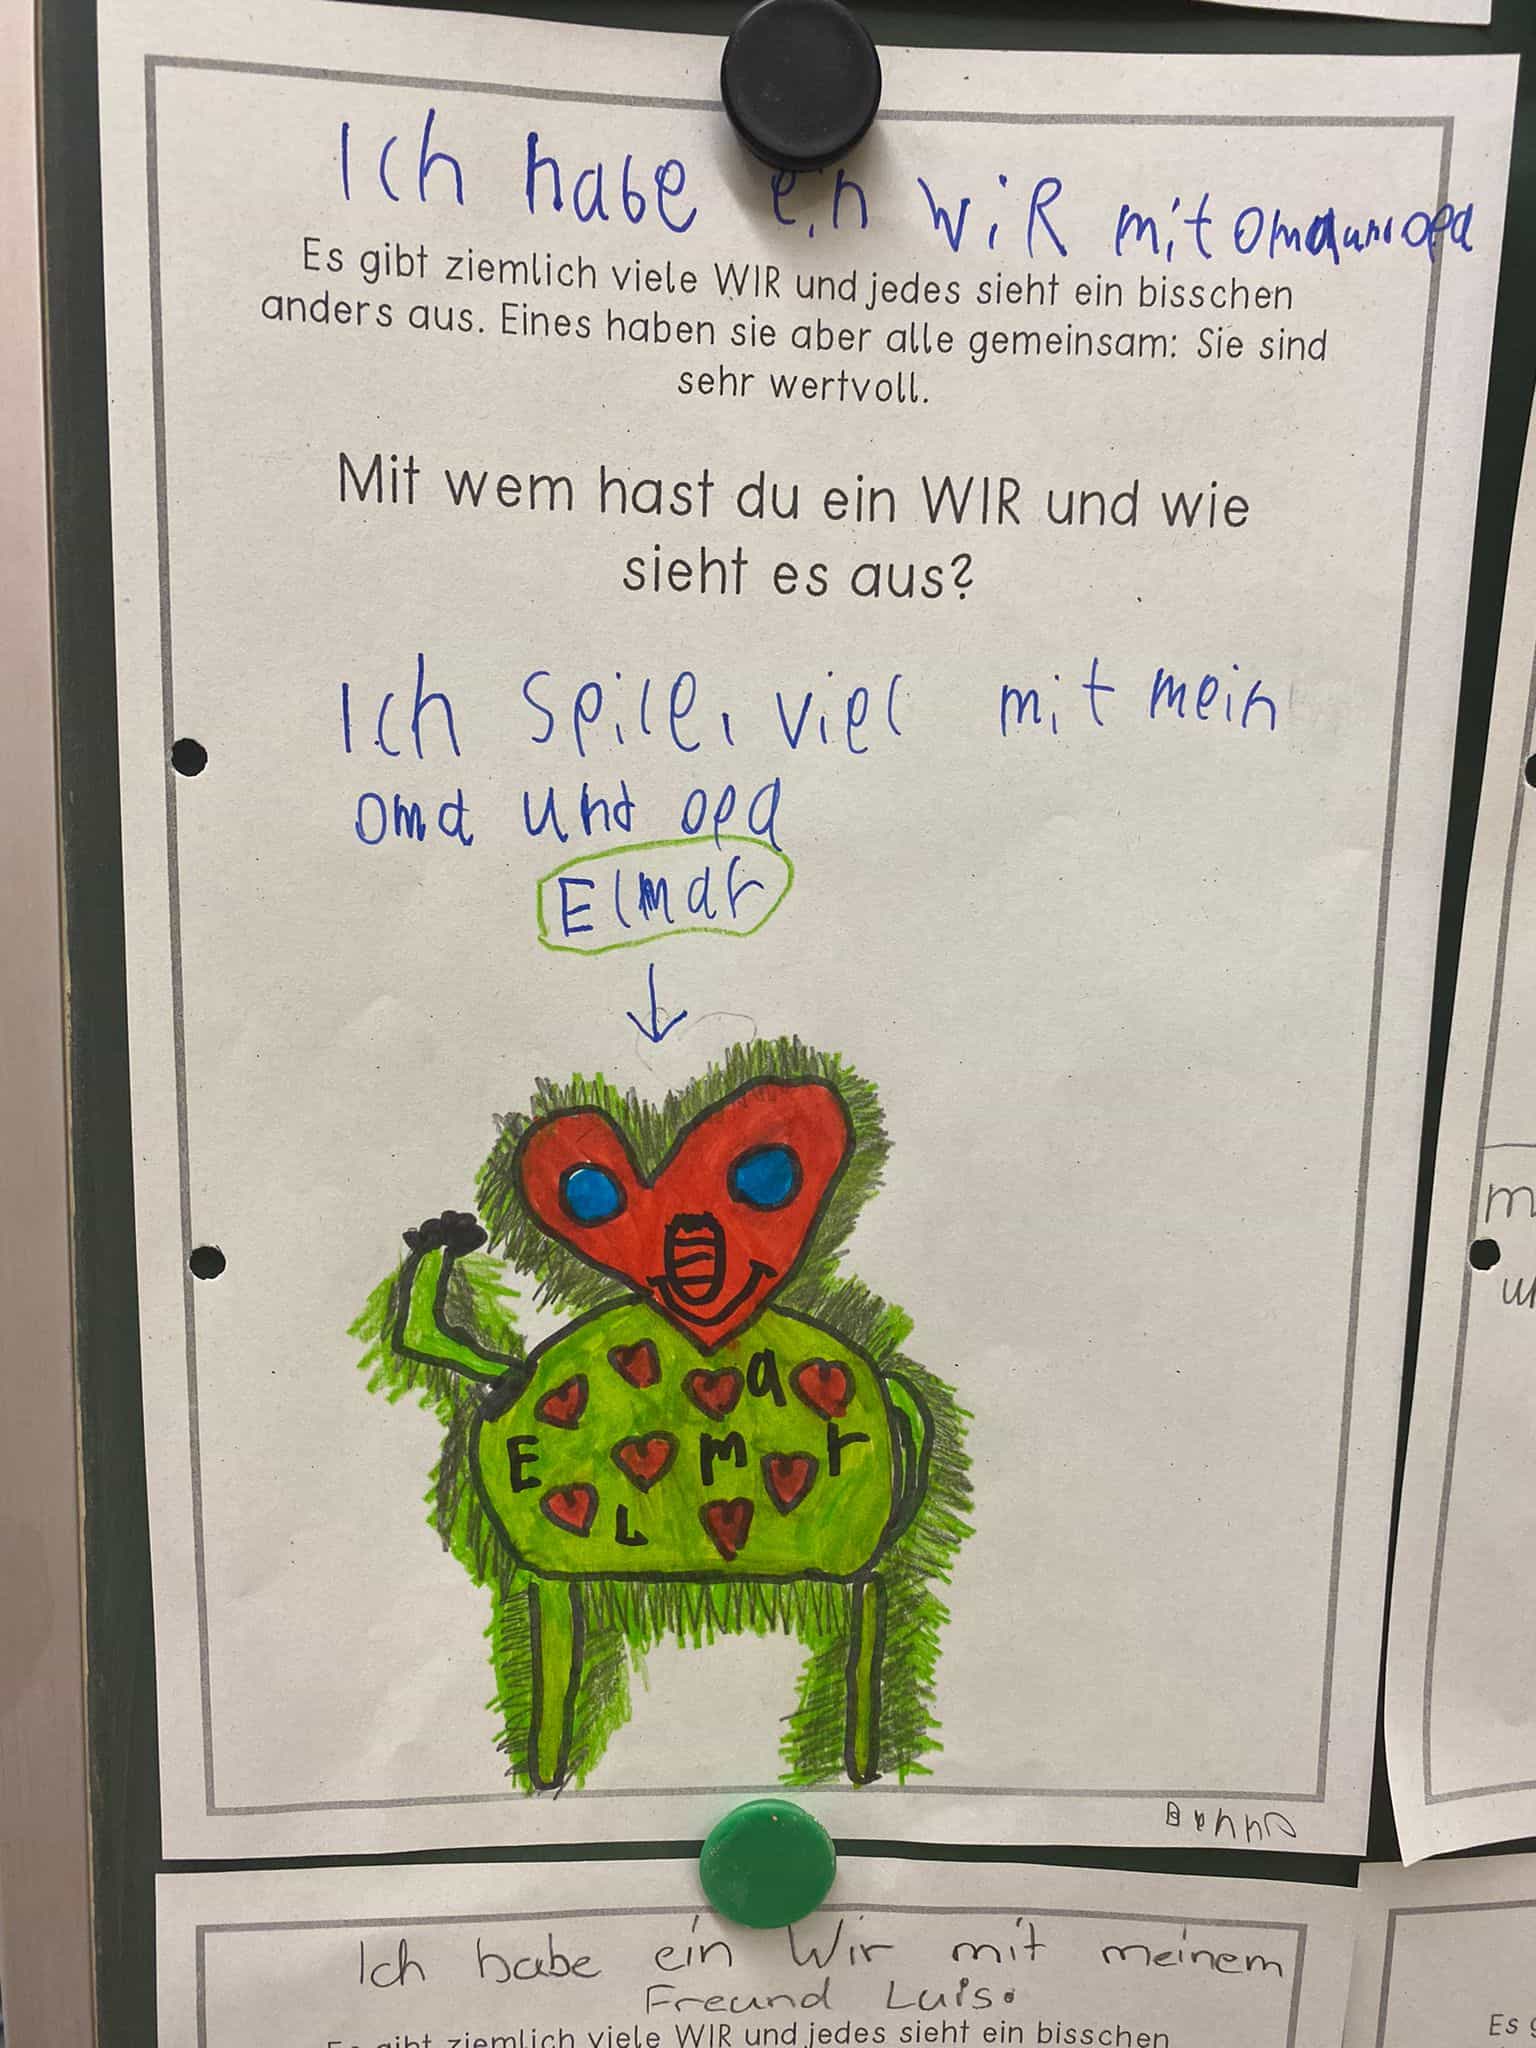 Ich habe ein WiR mit oma und opa
Es gibt ziemlich viele WIR und jedes sieht ein bisschen
anders aus. Eines haben sie aber alle gemeinsam: Sie sind
sehr wertvoll.
Mit wem hast du ein WIR und wie
sieht es aus?
Ich Spile, viel mit mein
oma und opa
Elmar
E L m a r
Benno
Ich habe ein Wir mit meinem
Freund Luis.
Es gibt ziemlich viele WIR und jedes sieht ein bisschen
m
Es